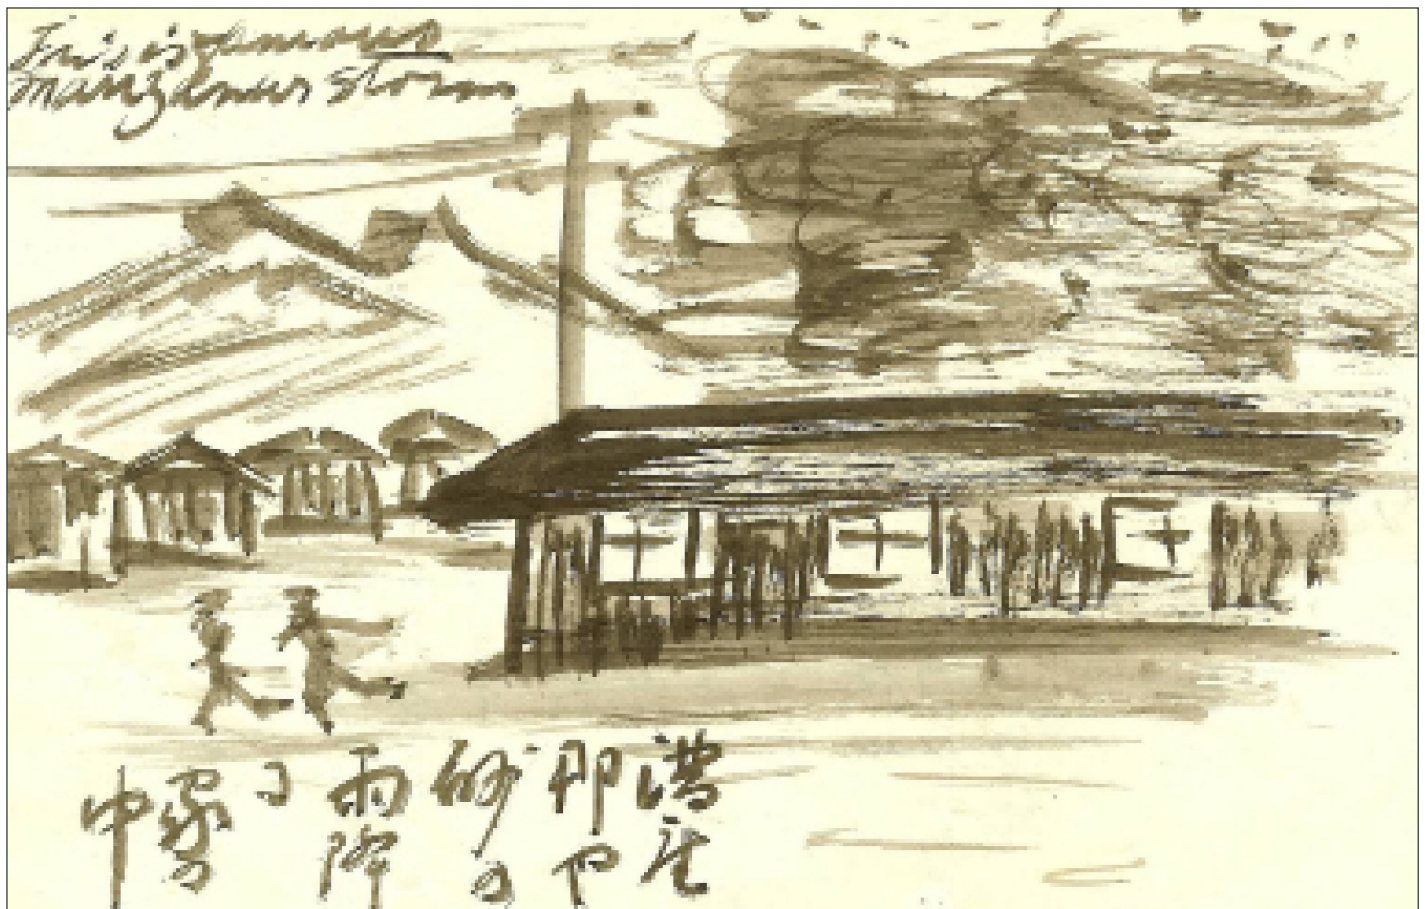 This is famous
Manzanar storm
満座
那や
砂の
雨降
る
家の
中